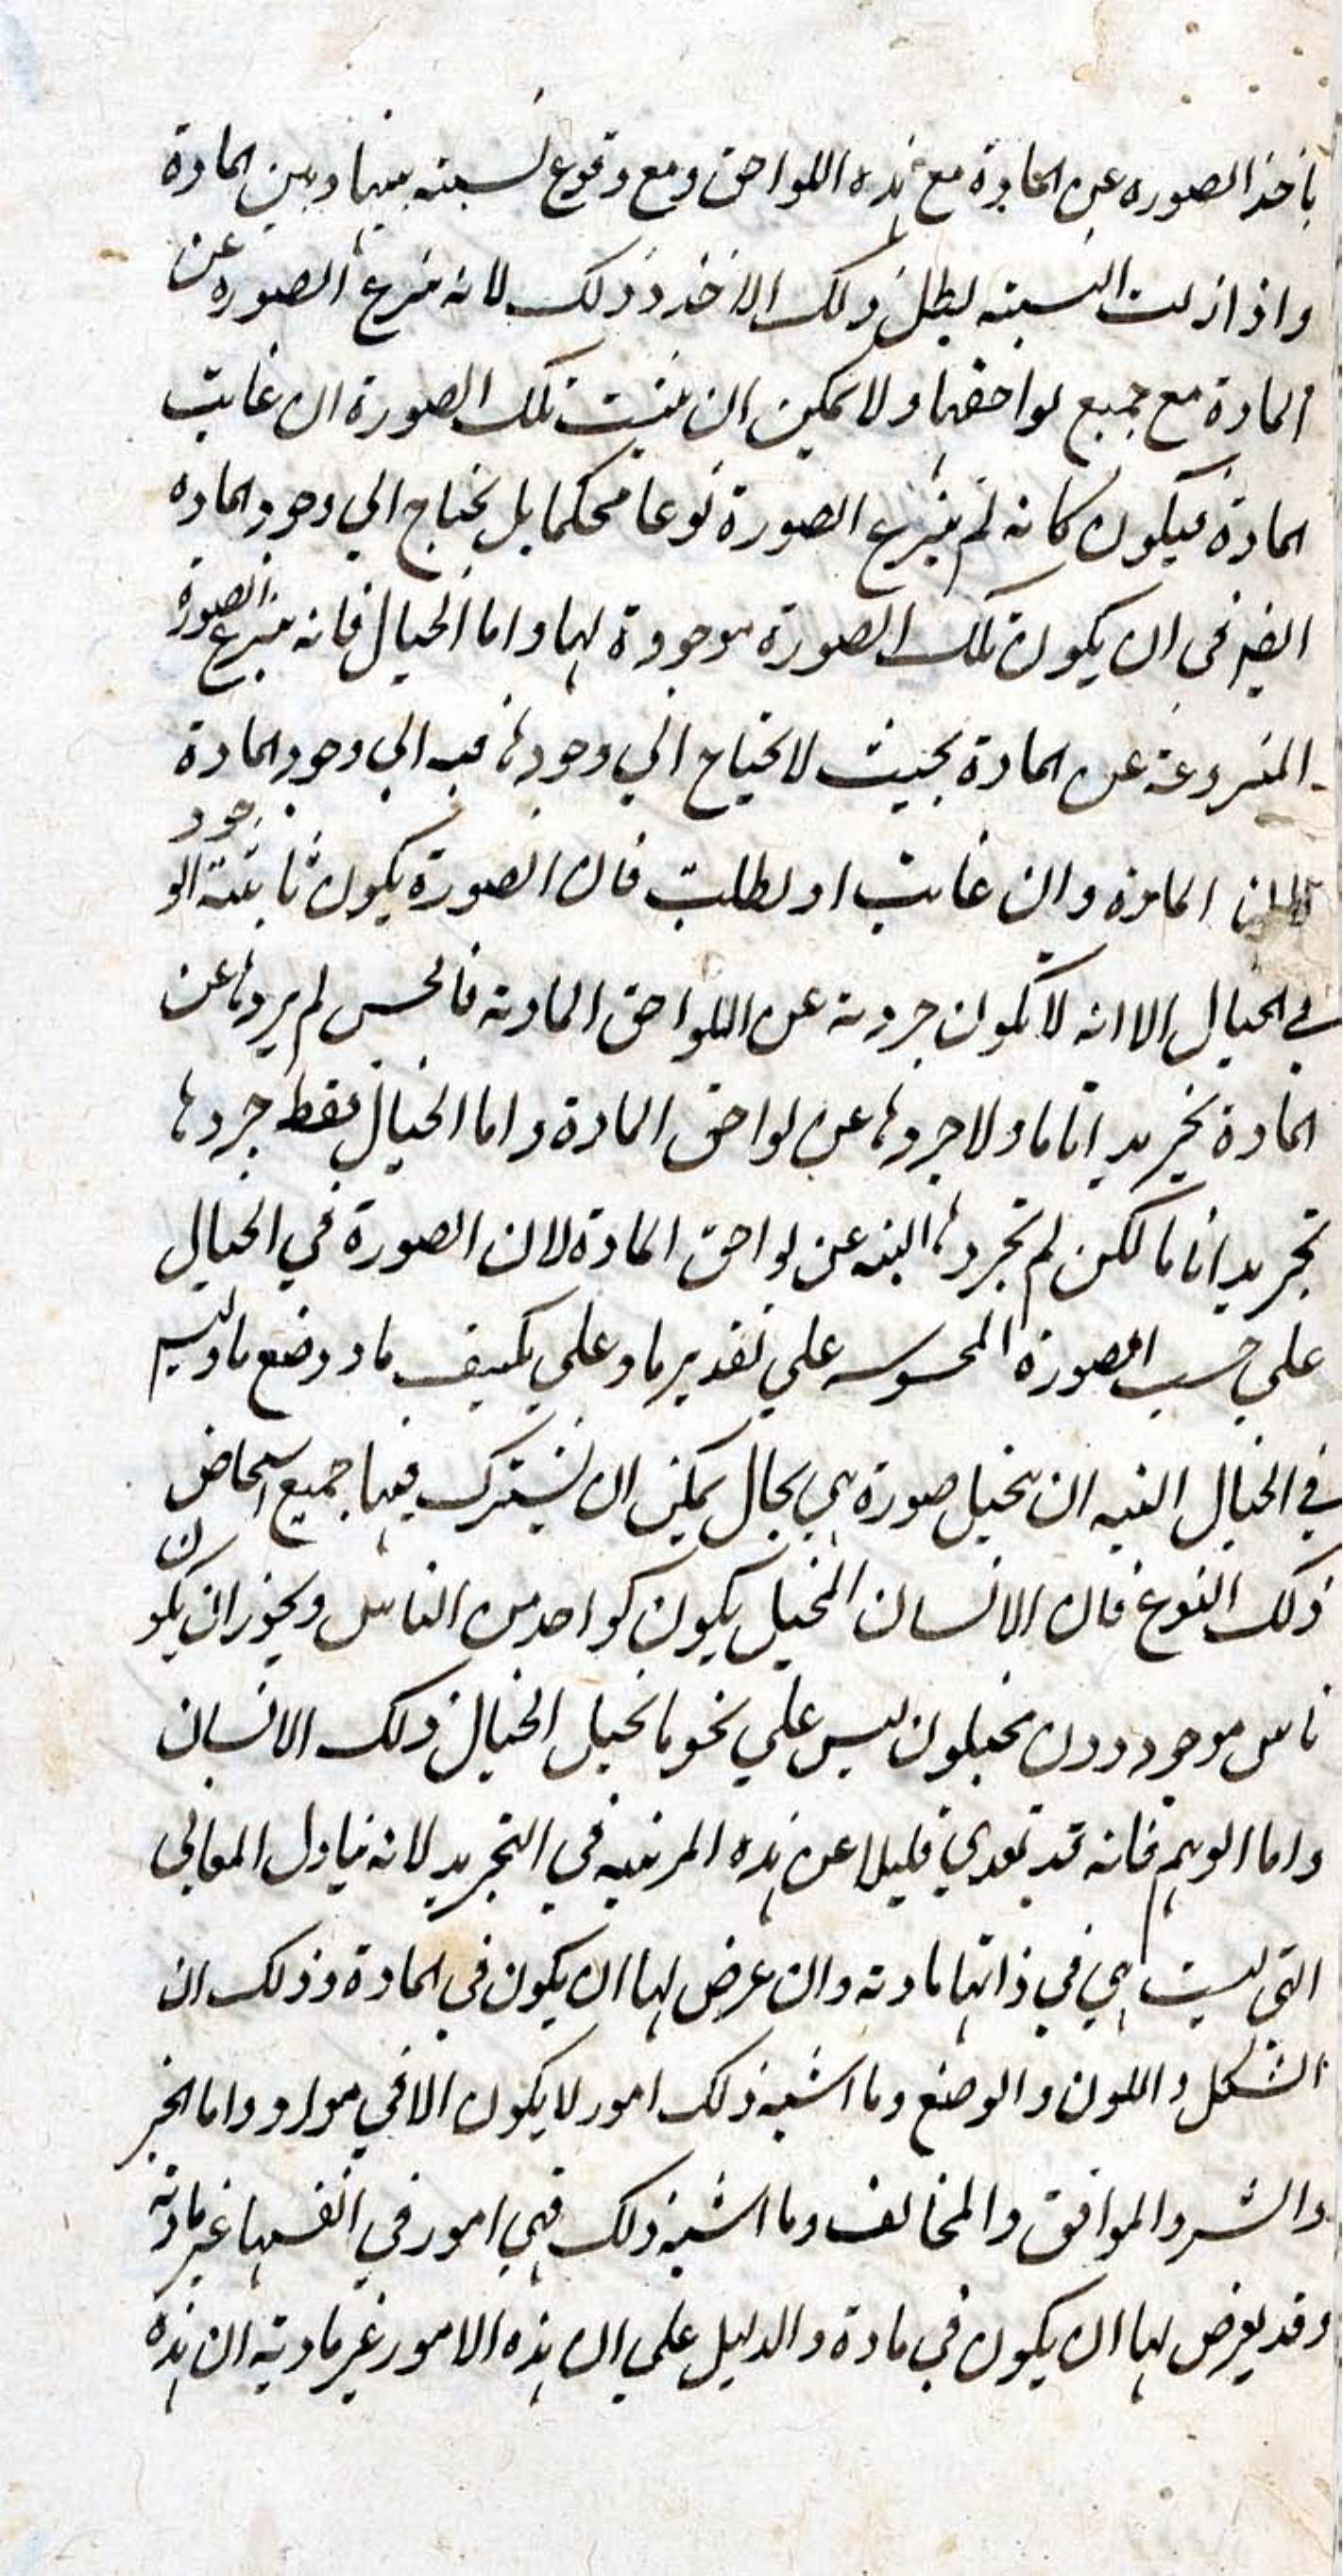 ياخذ الصوره عن المادة مع هذه اللواحق ومع وقوع نسبته بينها وبين المادة
واذا زلت النسبته بطل ذلك الاخذ وذلك لانه ينزع الصوره عن
المادة مع جميع لواحقها ولا يمكن ان يثبت تلك الصورة ان غابت
المادة فيكون كانه لم ينزع الصورة نوعا محكما بل يحتاج الي وجود الماده
ايضا في ان يكون تلك الصورة موجودة لها واما الخيال فانه ينزع الصورة
المنزوعة عن المادة بحيث لا يحتاج الي وجودها فيه الي وجود المادة
لان المادة وان غابت او بطلت فان الصورة يكون ثابتة الوجود
في الخيال الا انه لا يكون جردته عن اللواحق المادية فالحس لم يردها عن
المادة تجريدا تاما ولا جردها عن لواحق المادة واما الخيال فقط جردها
تجريدا تاما لكن لم تجردها البته عن لواحق المادة لان الصورة في الخيال
علي حسب الصورة المحسوسه علي تقدير ما وعلي تكييف ما ووضع ما وليس
في الخيال البته ان يتخيل صورة هي بحال يمكن ان يشترك فيها جميع اشخاص
ذلك النوع فان الانسان المتخيل يكون كواحد من الناس ويجوز ان يكون
ناس موجودون متخيلون ليس علي نحو ما تخيل الخيال ذلك الانسان
واما الوهم فانه قد تعدي قليلا عن هذه المرتبه في التجريد لانه يناول المعاني
التي ليست هي في ذاتها مادية وان عرض لها ان يكون في المادة وذلك ان
الشكل واللون والوضع وما اشبه ذلك امور لا يكون الا في مواد واما الخير
والشر والموافق والمخالف وما اشبه ذلك فهي امور في انفسها غير مادية
وقد يعرض لها ان يكون في مادة والدليل علي ان هذه الامور غير مادية ان هذه